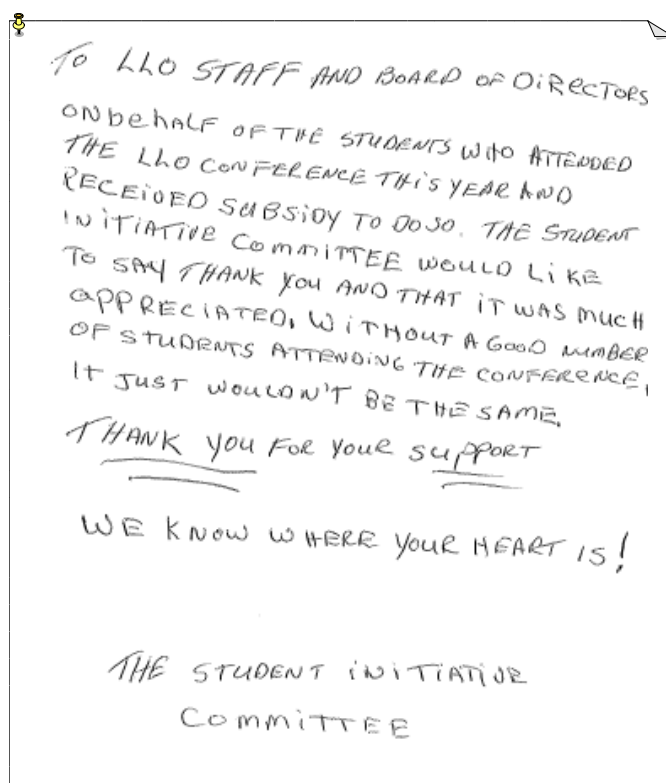 TO LLO STAFF AND BOARD OF DIRECTORS
ON behALF OF THE STUDENTS WHO ATTENDED
THE LLO CONFERENCE THIS YEAR AND
RECEIVED SUBSIDY TO DO SO. THE STUDENT
INITIATIVE COMMITTEE WOULD LIKE
TO SAY THANK YOU AND THAT IT WAS MUCH
APPRECIATED. WITHOUT A GOOD NUMBER
OF STUDENTS ATTENDING THE CONFERENCE,
IT JUST WOULDN'T BE THE SAME.
THANK YOU FOR YOUR SUPPORT
WE KNOW WHERE YOUR HEART IS!
THE STUDENT INITIATIVE
COMMITTEE